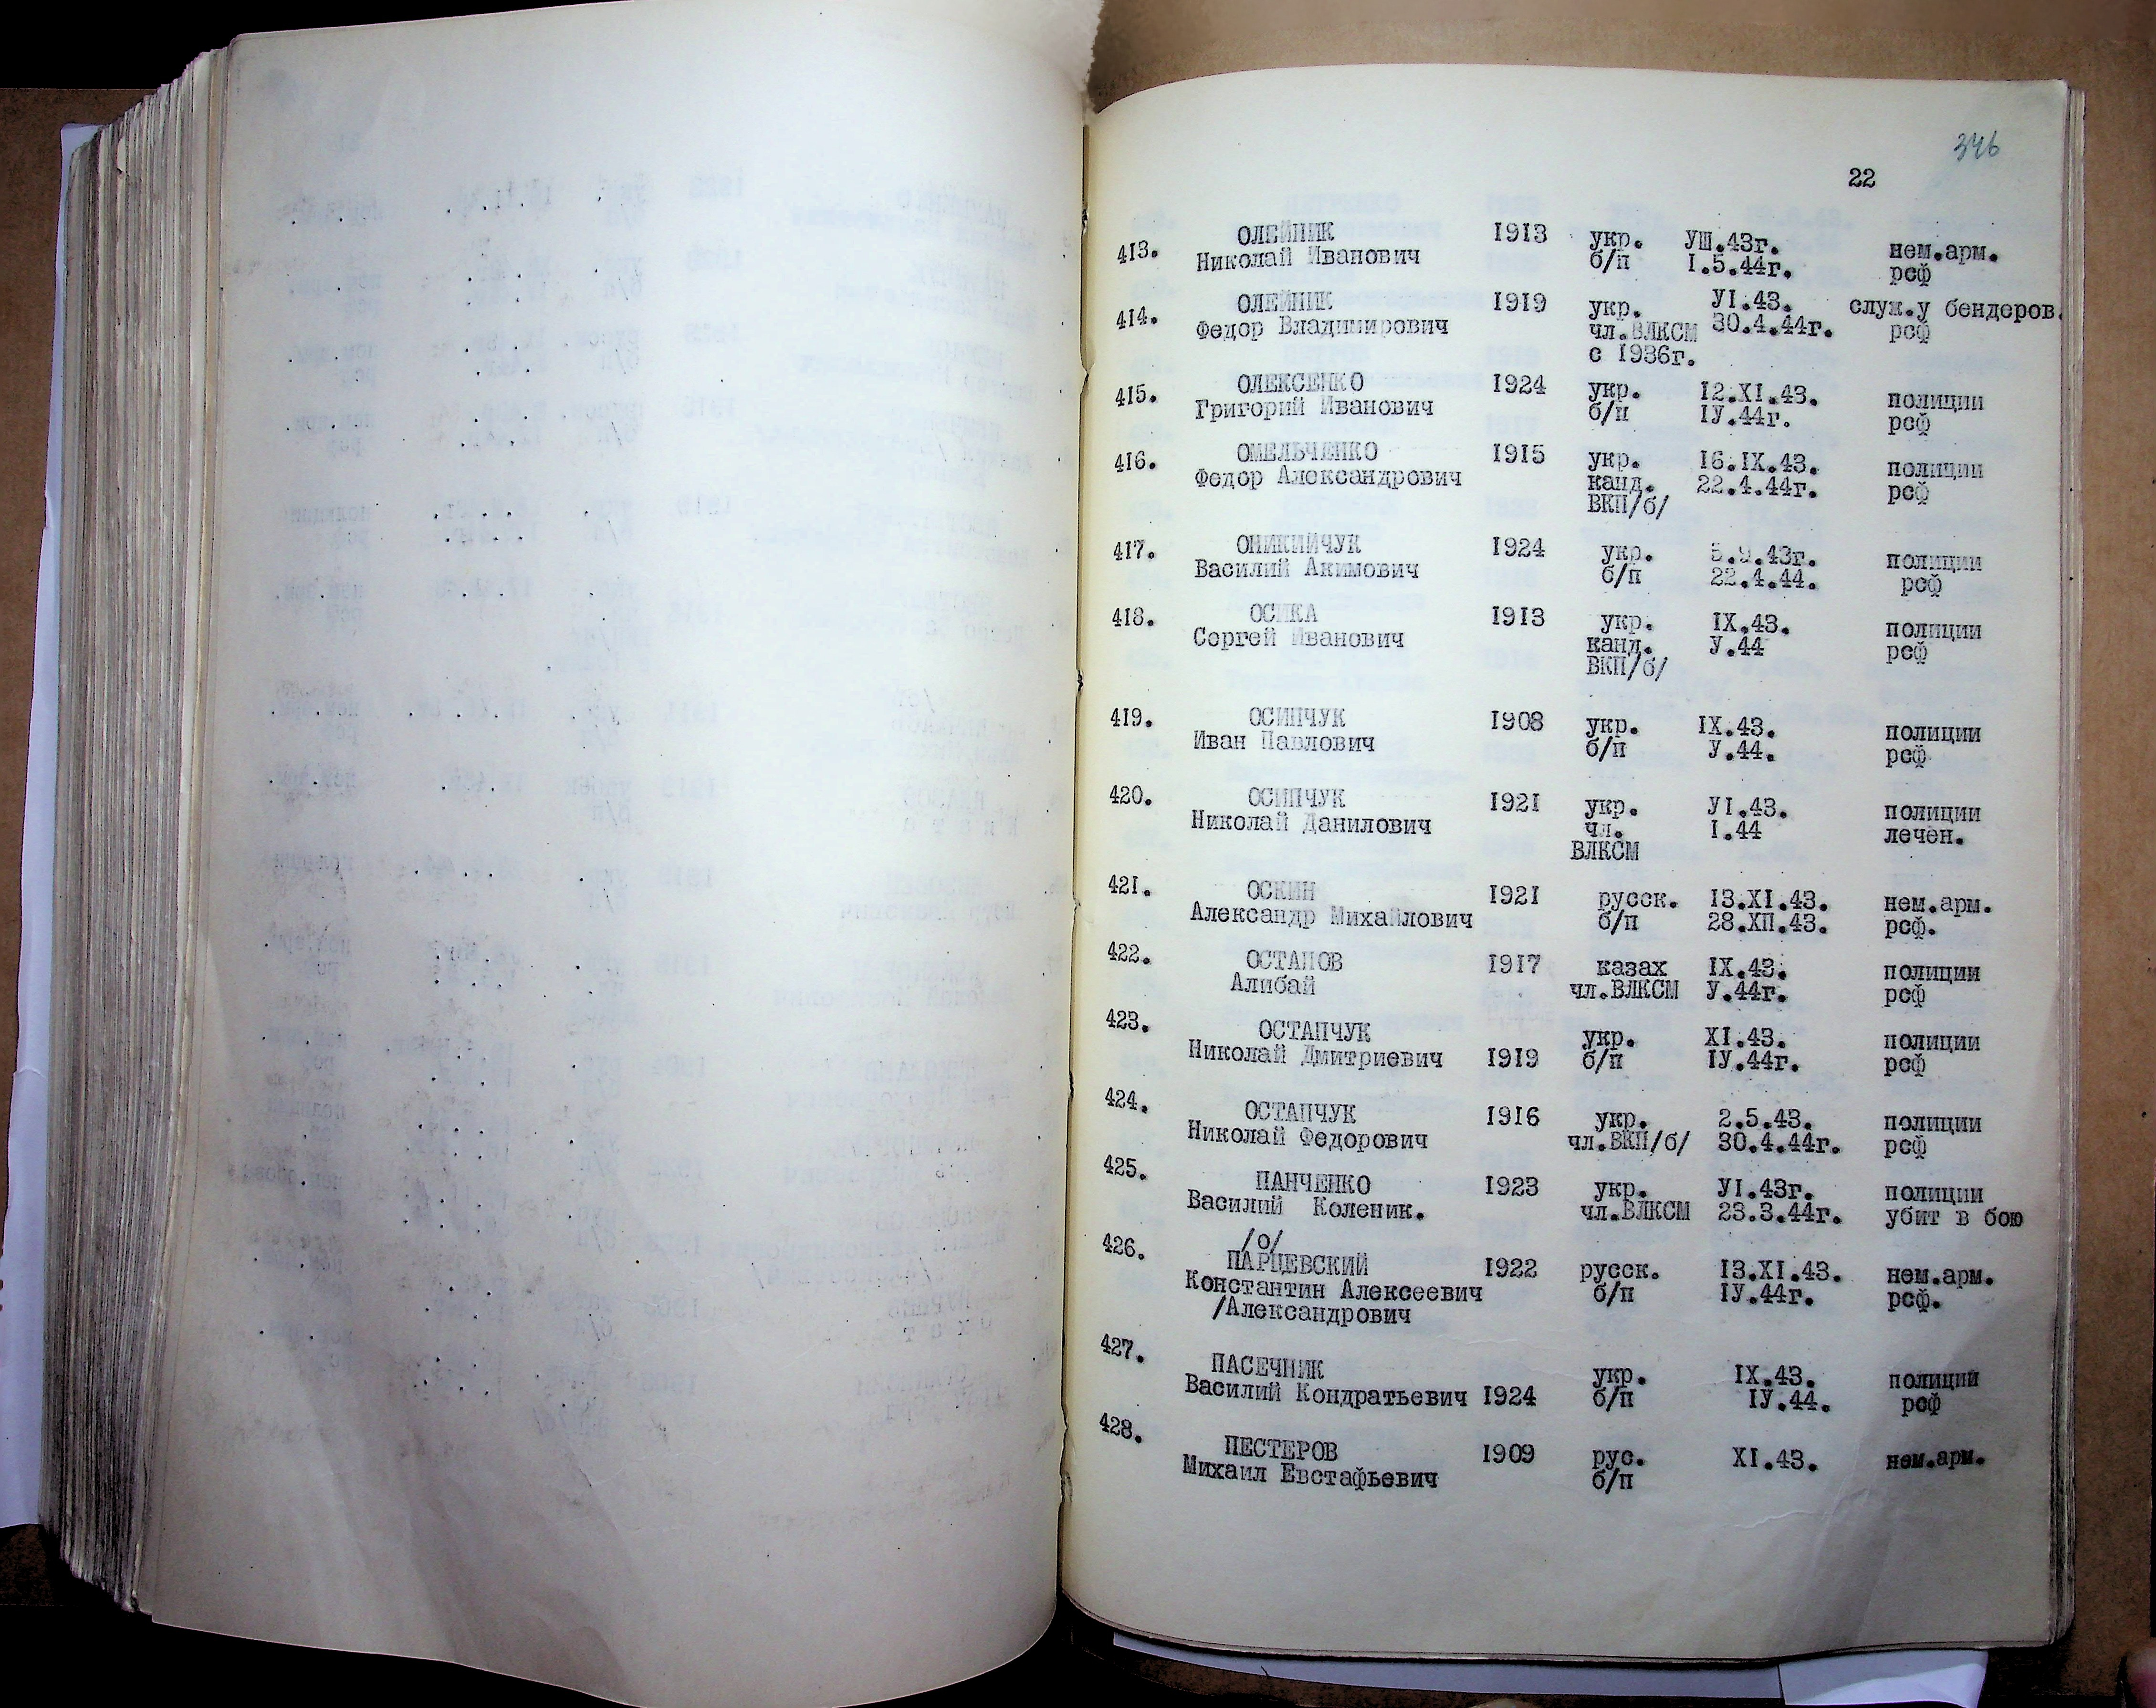 346
22
413. ОЛЕЙНИК 1913 укр. УШ.43г. нем.арм.
Николай Иванович б/п I.5.44г. рсф
414. ОЛЕЙНИК 1919 укр. УI.43. служ.у бендеров.
Федор Владимирович чл.ВЛКСМ 30.4.44г. рсф
с 1936г.
415. ОЛЕКСЕНКО 1924 укр. 12.XI.43. полиции
Григорий Иванович б/п IУ.44г. рсф
416. ОМЕЛЬЧЕНКО 1915 укр. 16.IX.43. полиции
Федор Александрович канд. 22.4.44г. рсф
ВКП/б/
417. ОНИКИЙЧУК 1924 укр. 5.9.43г. полиции
Василий Акимович б/п 22.4.44. рсф
418. ОСИКА 1913 укр. IX.43. полиции
Сергей Иванович канд. У.44 рсф
ВКП/б/
419. ОСИПЧУК 1908 укр. IX.43. полиции
Иван Павлович б/п У.44. рсф
420. ОСИПЧУК 1921 укр. УI.43. полиции
Николай Данилович чл. I.44 лечен.
ВЛКСМ
421. ОСКИН 1921 русск. 13.XI.43. нем.арм.
Александр Михайлович б/п 28.XП.43. рсф.
422. ОСТАНОВ 1917 казах IX.43. полиции
Алибай чл.ВЛКСМ У.44г. рсф
423. ОСТАПЧУК укр. XI.43. полиции
Николай Дмитриевич 1919 б/п IУ.44г. рсф
424. ОСТАПЧУК 1916 укр. 2.5.43. полиции
Николай Федорович чл.ВКП/б/ 30.4.44г. рсф
425. ПАНЧЕНКО 1923 укр. УI.43г. полиции
Василий Коленик. чл.ВЛКСМ 23.3.44г. убит в бою
/о/
426. ПАРЦЕВСКИЙ 1922 русск. 13.XI.43. нем.арм.
Константин Алексеевич б/п IУ.44г. рсф.
/Александрович
427. ПАСЕЧНИК укр. IX.43. полиции
Василий Кондратьевич 1924 б/п IУ.44. рсф
428. ПЕСТЕРОВ 1909 рус. XI.43. нем.арм.
Михаил Евстафьевич б/п